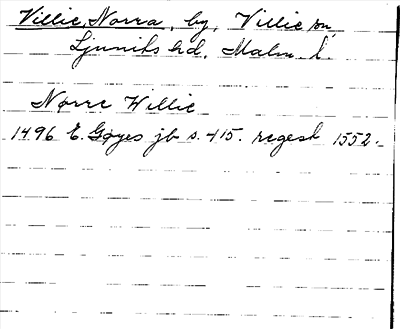 Villie, Norra, by, Villie sn
Ljunits hd. Malm. l.
Norre Willie
1496 E. Gøyes jb s. 415. regest 1552.